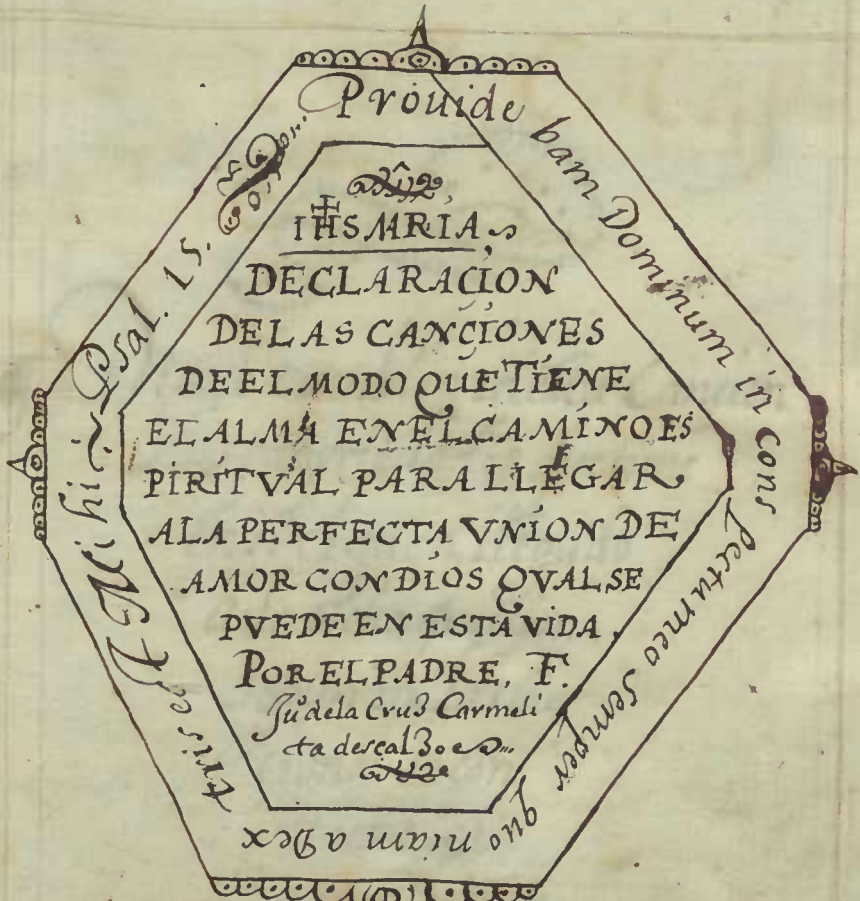 Prouide bam Dominum in cons
pectu meo semper quo niam a Dex
tris est Mihi Psal. 15.
IHS MRÍA
DECLARACÍON
DE LAS CANÇÍONES
DE EL MODO QUE TÍENE
EL ALMA EN EL CAMÍNO ES
PIRÍTVAL PARA LLEGAR
A LA PERFECTA VNÍON DE
AMOR CON DÍOS QVAL SE
PVEDE EN ESTA VIDA,
POR EL PADRE, F.
Juº dela Cruz Carmeli
ta descalzo